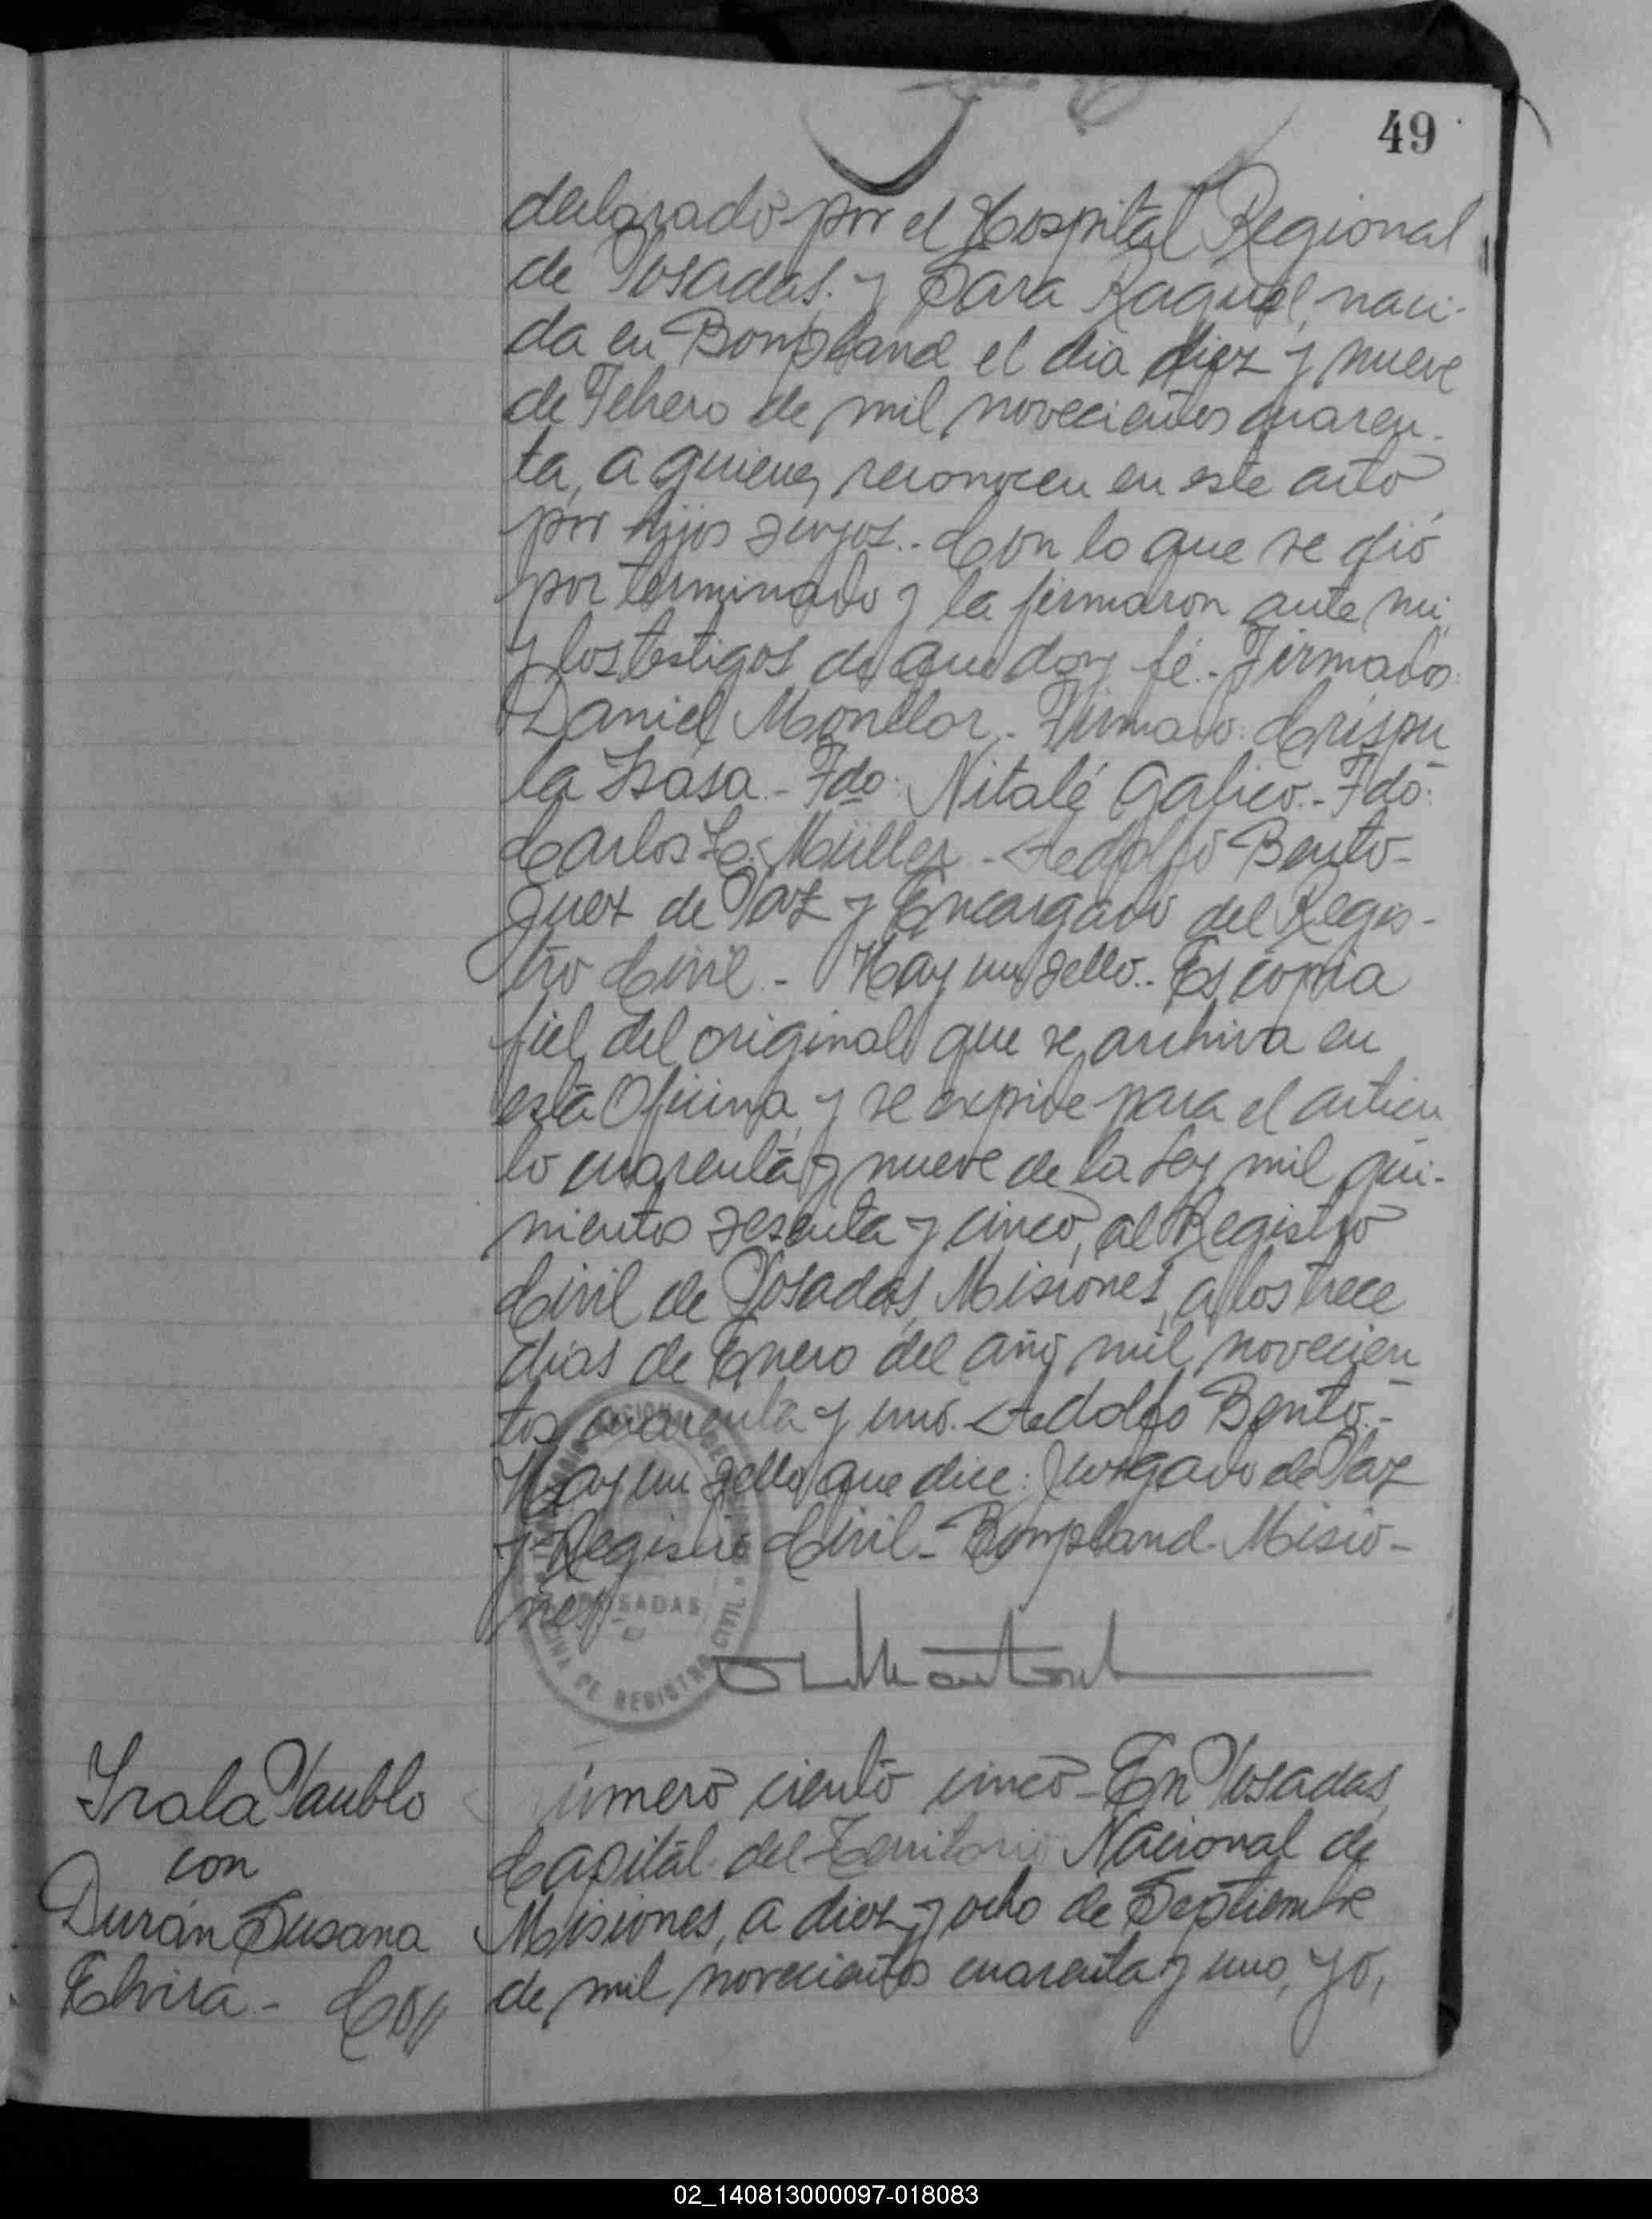 49
declarado por el Hospital Regional
de Posadas. y Sara Raquel, naci-
da en Bonpland el dia diez y nueve
de Febrero de mil novecientos cuaren-
ta, a quienes reconocen en este acto
por hijos suyos.- Con lo que se dió
por terminado y la firmaron ante mi
y los testigos de que doy fé.- Firmados:
Daniel Monllor.- Firmado: Crispu
la Isasa.- Fdo: Nitalé Gafico.- Fdo:
Carlos Müller.- Adolfo Bento-
Juez de Paz y Encargado del Regis-
tro Civil.- Hay un sello.- Es copia
fiel del original que se archiva en
esta Oficina, y se expide para el articu
lo cuarenta y nueve de la Ley mil qui-
nientos sesenta y cinco, al Registro
Civil de Posadas, Misiones, a los trece
dias de Enero del año mil novecien
tos cuarenta y uno. Adolfo Bento.-
Hay un sello que dice: Juzgado de Paz
y Registro Civil- Bonpland- Misio-
nes.-
POSADAS
DE REGISTRO CIVIL
Irala Paublo
con
Durán Susana
Elvira -
úmero ciento cinco- En Posadas,
Capital del Territorio Nacional de
Misiones, a diez y ocho de Septiembre
de mil novecientos cuarenta y uno, yo,
02_140813000097-018083